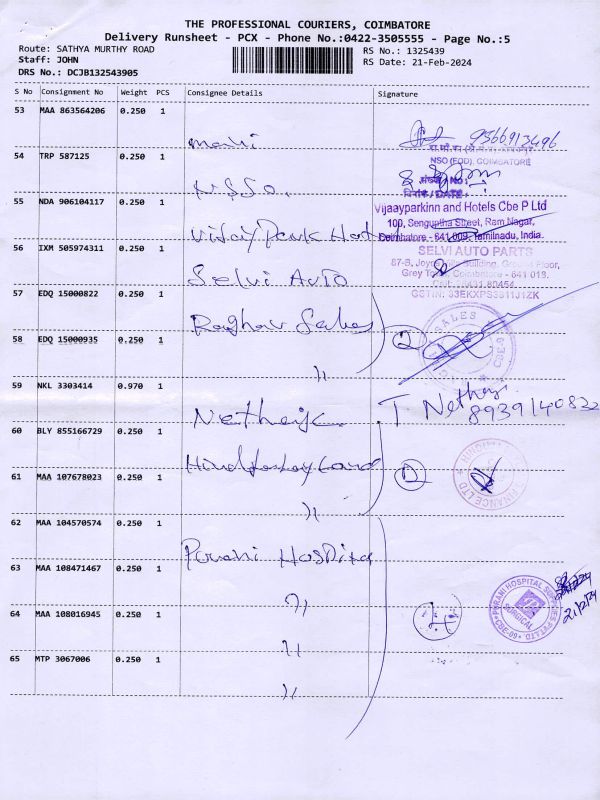 THE PROFESSIONAL COURIERS, COIMBATORE
Delivery Runsheet - PCX - Phone No.:0422-3505555 - Page No.:5
Route: SATHYA MURTHY ROAD
RS No.: 1325439
Staff: JOHN
RS Date: 21-Feb-2024
DRS No.: DCJB132543905
S No Consignment No Weight PCS Consignee Details Signature
53 MAA 863564206 0.250 1
Mani 9566913496
NSO (FOD), COIMBATORE
54 TRP 587125 0.250 1
DATE
NSSO.
55 NDA 906104117 0.250 1
Vijaayparkinn and Hotels Cbe P Ltd
100, Senguptha Street, Ram Nagar,
Coimbatore - 641 009. Tamilnadu, India.
Vijay Park Hotel
56 IXM 505974311 0.250 1
SELVI AUTO PARTS
Coimbatore - 641 018.
Selvi Auto
GSTIN: 33EKXPS3811J1ZK
57 EDQ 15000822 0.250 1
Raghav Sales 2
SALES
58 EDQ 15000935 0.250 1
"
59 NKL 3303414 0.970 1
T Nethaji
8939140832
60 BLY 855166729 0.250 1
Hinduja
61 MAA 107678023 0.250 1
FINANCE LTD
"
62 MAA 104570574 0.250 1
Purani Hospital
63 MAA 108471467 0.250 1
"
PURANI HOSPITAL SUPPLIES PVT LTD
SURGICAL
4
64 MAA 108016945 0.250 1
"
65 MTP 3067006 0.250 1
"